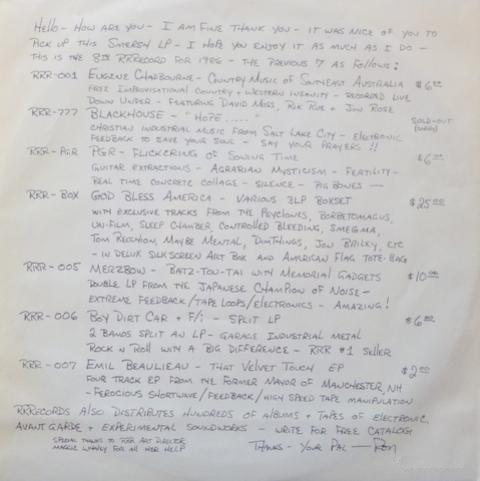 Hello - How are you - I am fine thank you - it was nice of you to
pick up this Smersh LP - I hope you enjoy it as much as I do -
This is the 8th RRRecord for 1986 - the previous 7 as follows:
RRR-001 Eugene Chadbourne - Country Music of Southeast Australia $6.00
Free Improvisational Country + Western Insanity - Recorded Live
Down Under - Featuring David Moss, Rik Rue + Jon Rose
RRR-777 Blackhouse - "Hope....." Sold-out
Christian Industrial Music from Salt Lake City - Electronic
Feedback to Save Your Soul - Say Your Prayers !!
RRR-PGR PGR - Flickering of Sowing Time $6.00
Guitar Extractions - Agrarian Mysticism - Fertility -
Real Time Concrete Collage - Silence - Pig Bones -
RRR-BOX God Bless America - Various 3LP Boxset $25.00
with exclusive tracks from the Psyclones, Borbetomagus,
Un-Film, Sleep Chamber, Controlled Bleeding, Smegma,
Tom Recchion, Maybe Mental, DimThings, Jon Briley, etc
- in Delux Silkscreen Art Box and American Flag Tote-Bag
RRR-005 Merzbow - Batz-Tou-Tai with Memorial Gadgets $10.00
Double LP from the Japanese Champion of Noise -
Extreme Feedback/Tape Loops/Electronics - Amazing!
RRR-006 Boy Dirt Car + F/i - Split LP $6.00
2 Bands Split an LP - Garage Industrial Metal
Rock n Roll with a Big Difference - RRR #1 Seller
RRR-007 Emil Beaulieau - That Velvet Touch EP $2.00
Four Track EP from the Former Mayor of Manchester, NH
- Ferocious Shortwave/Feedback/High Speed Tape Manipulation
RRRecords Also Distributes Hundreds of Albums + Tapes of Electronic,
Avant Garde + Experimental Soundworks - Write for Free Catalog
Special Thanks to RRR Art Director
Maggie for all her help
Thanks - Your Pal - Ron